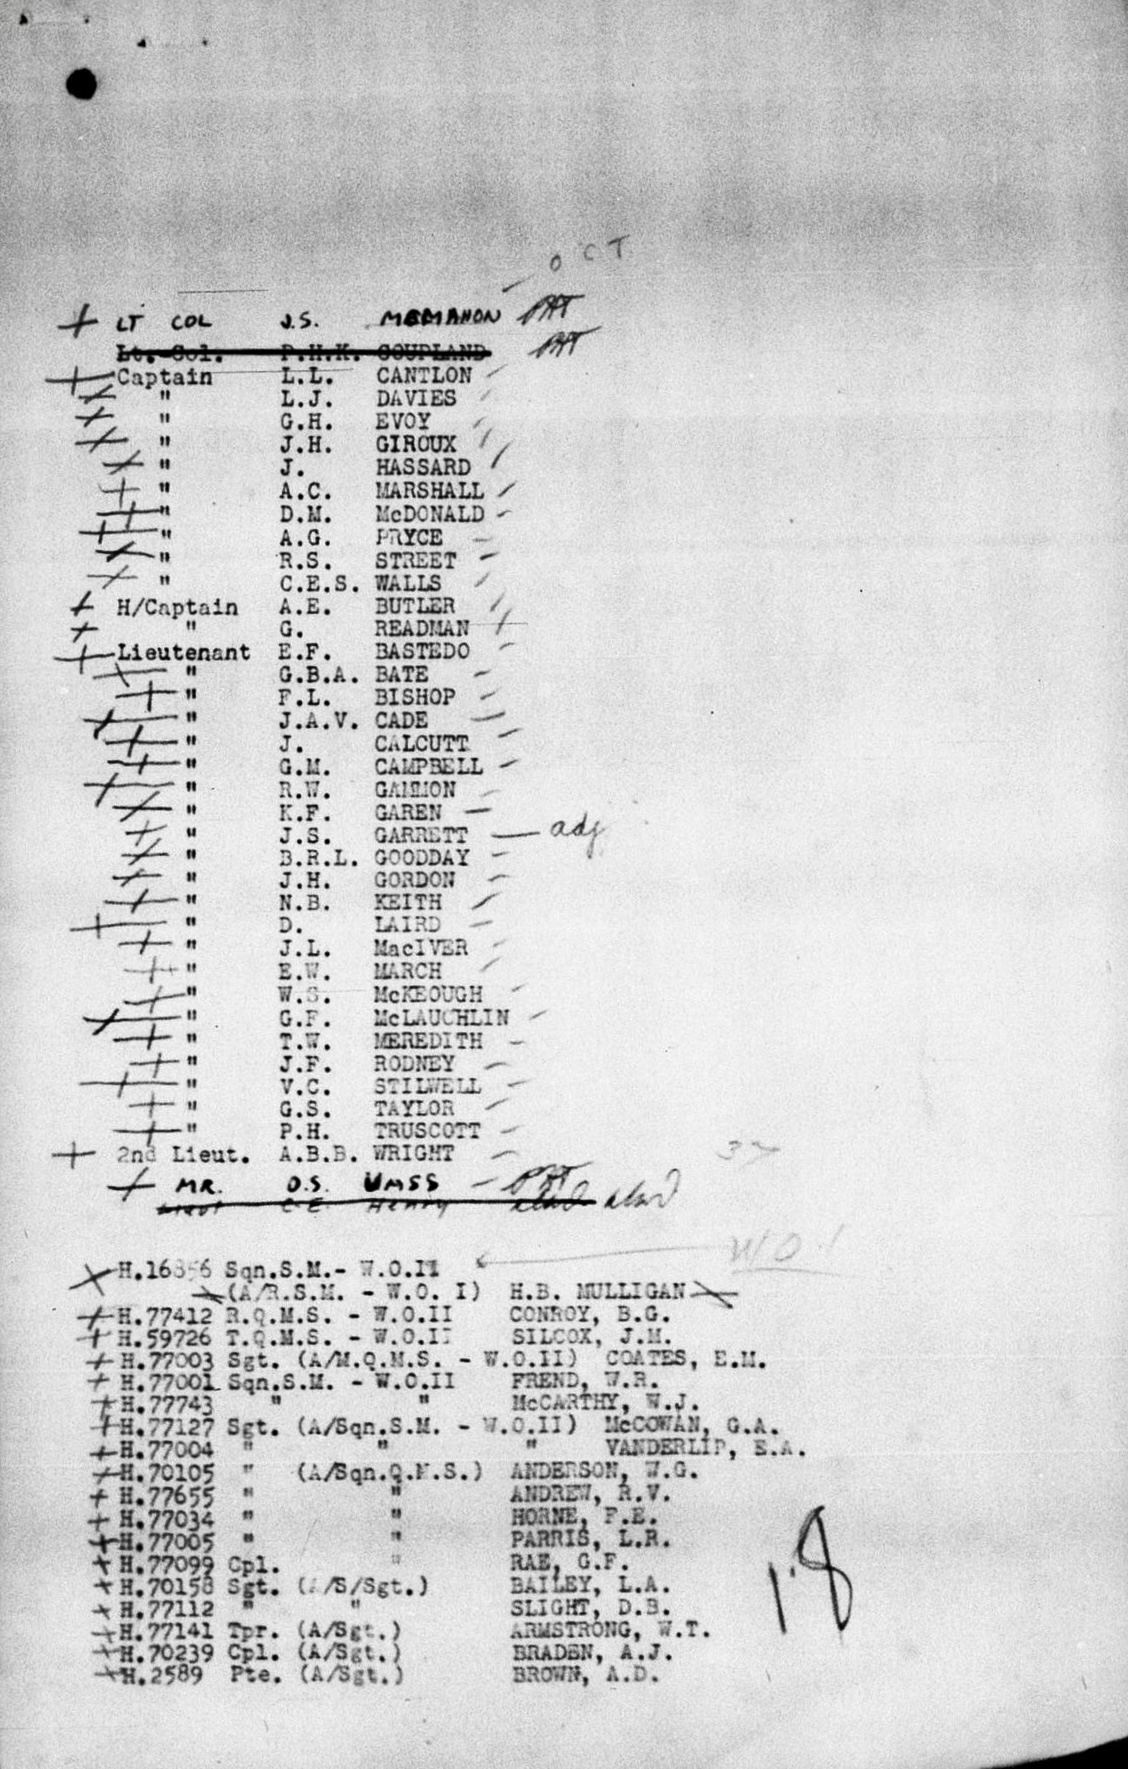 OCT
LT COL J.S. McMAHON
Lt. Col. P.H.K. COUPLAND
Captain L.L. CANTLON
" L.J. DAVIES
" G.H. EVOY
" J.H. GIROUX
" J. HASSARD
" A.C. MARSHALL
" D.M. McDONALD
" A.G. PRYCE
" R.S. STREET
" C.E.S. WALLS
H/Captain A.E. BUTLER
" G. READMAN
Lieutenant E.F. BASTEDO
" G.B.A. BATE
" F.L. BISHOP
" J.A.V. CADE
" J. CALCUTT
" G.M. CAMPBELL
" R.W. GAMMON
" K.F. GAREN
" J.S. GARRETT — adj
" B.R.L. GOODDAY
" J.H. GORDON
" N.B. KEITH
" D. LAIRD
" J.L. MacIVER
" E.W. MARCH
" W.S. McKEOUGH
" G.F. McLAUCHLIN
" T.W. MEREDITH
" J.F. RODNEY
" V.C. STILWELL
" G.S. TAYLOR
" P.H. TRUSCOTT
2nd Lieut. A.B.B. WRIGHT
37
MR. O.S. UMSS
C.E. Henry
WO 1
H.16856 Sqn.S.M.- W.O.II
(A/R.S.M. - W.O. I) H.B. MULLIGAN
H.77412 R.Q.M.S. - W.O.II CONROY, B.G.
H.59726 T.Q.M.S. - W.O.II SILCOX, J.M.
H.77003 Sgt. (A/M.Q.M.S. - W.O.II) COATES, E.M.
H.77001 Sqn.S.M. - W.O.II FREND, W.R.
H.77743 " " McCARTHY, W.J.
H.77127 Sgt. (A/Sqn.S.M. - W.O.II) McCOWAN, G.A.
H.77004 " " " VANDERLIP, E.A.
H.70105 " (A/Sqn.Q.M.S.) ANDERSON, W.G.
H.77655 " " ANDREW, R.V.
H.77034 " " HORNE, F.E.
H.77005 " " PARRIS, L.R.
H.77099 Cpl. " RAE, G.F.
H.70158 Sgt. (A/S/Sgt.) BAILEY, L.A.
H.77112 " " SLIGHT, D.B.
H.77141 Tpr. (A/Sgt.) ARMSTRONG, W.T.
H.70239 Cpl. (A/Sgt.) BRADEN, A.J.
H.2589 Pte. (A/Sgt.) BROWN, A.D.
1.8